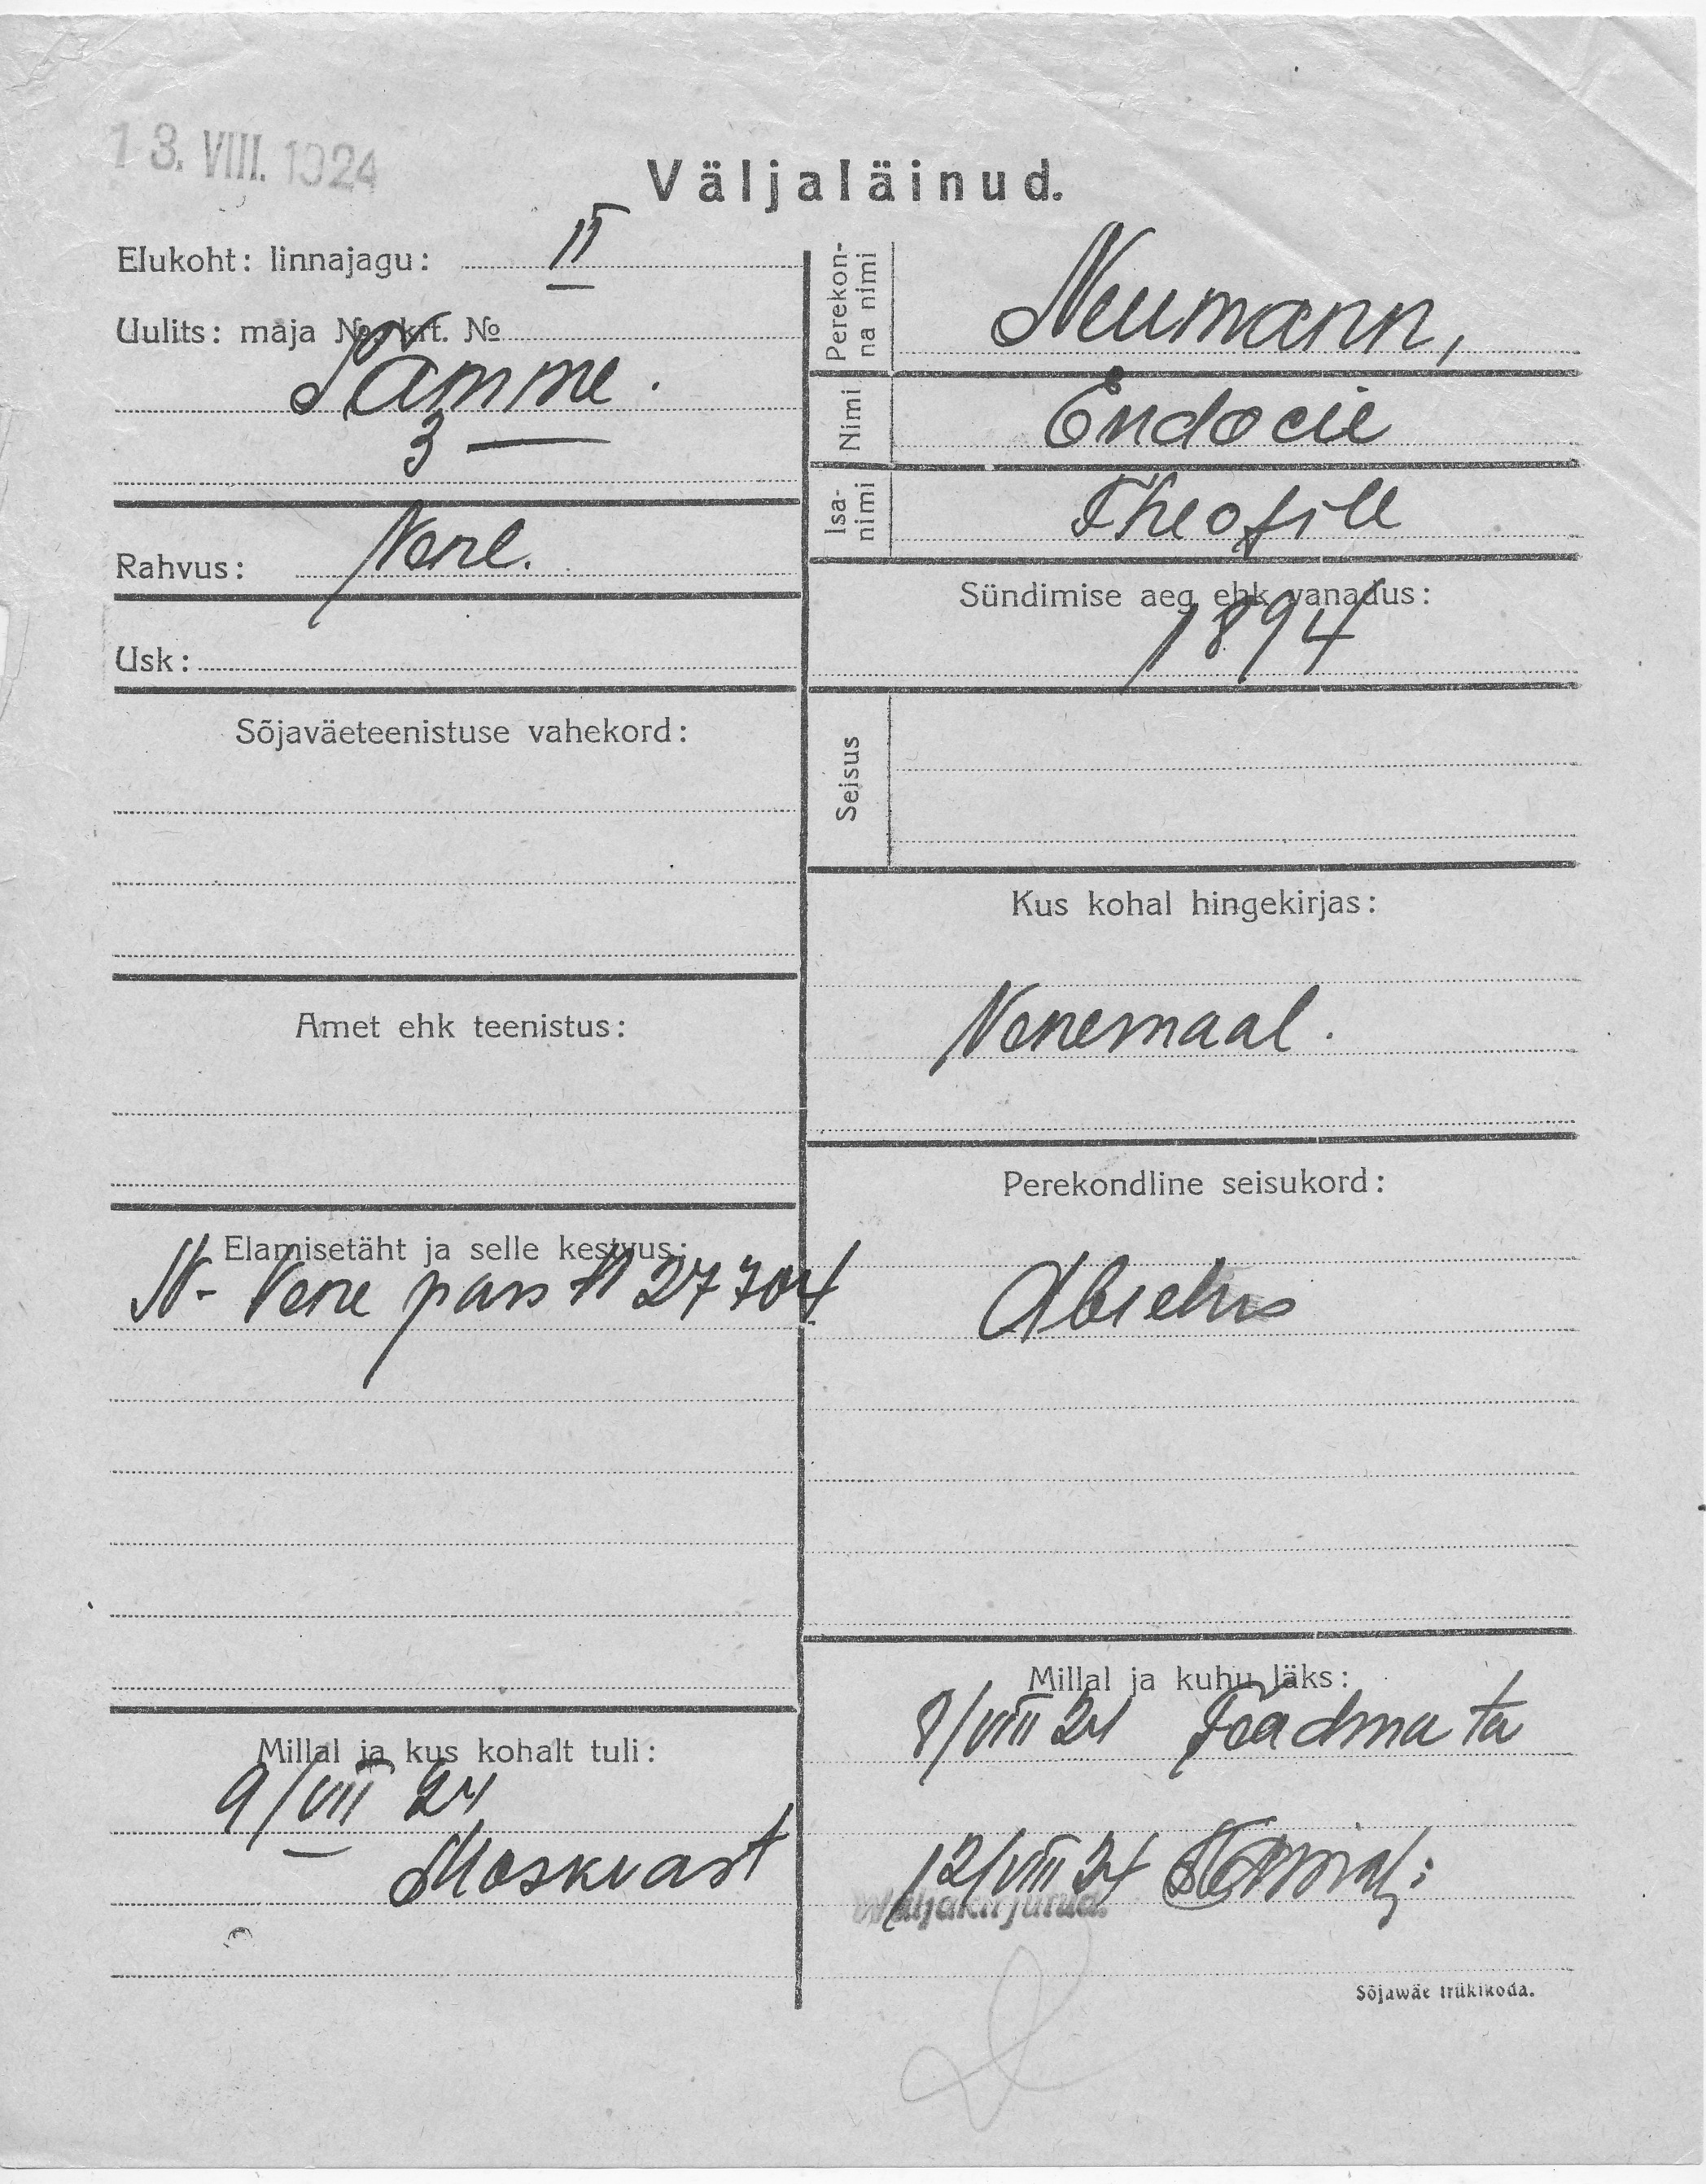 13. VIII. 1924
Väljaläinud.
Elukoht: linnajagu: II
Uulits: maja № krt. №
Tamme.
3 —
Rahvus: Vene.
Usk:
Sõjaväeteenistuse vahekord:
Amet ehk teenistus:
Elamisetäht ja selle kestvus:
N- Vene pass № 27704
Millal ja kus kohalt tuli:
9/VII 24
Moskvast
Perekon-
na nimi
Neumann,
Nimi
Eudocie
Isa-
nimi
Theofill
Sündimise aeg ehk vanadus:
1894
Seisus
Kus kohal hingekirjas:
Venemaal.
Perekondline seisukord:
Abielus
Millal ja kuhu läks:
8/VIII 24 Teadmata
12/VIII 24
Väljakirjutud.
Sõjawäe trükikoda.